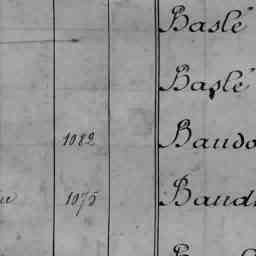 Baslé
Baslé
1082 Baudo
1075 Baud